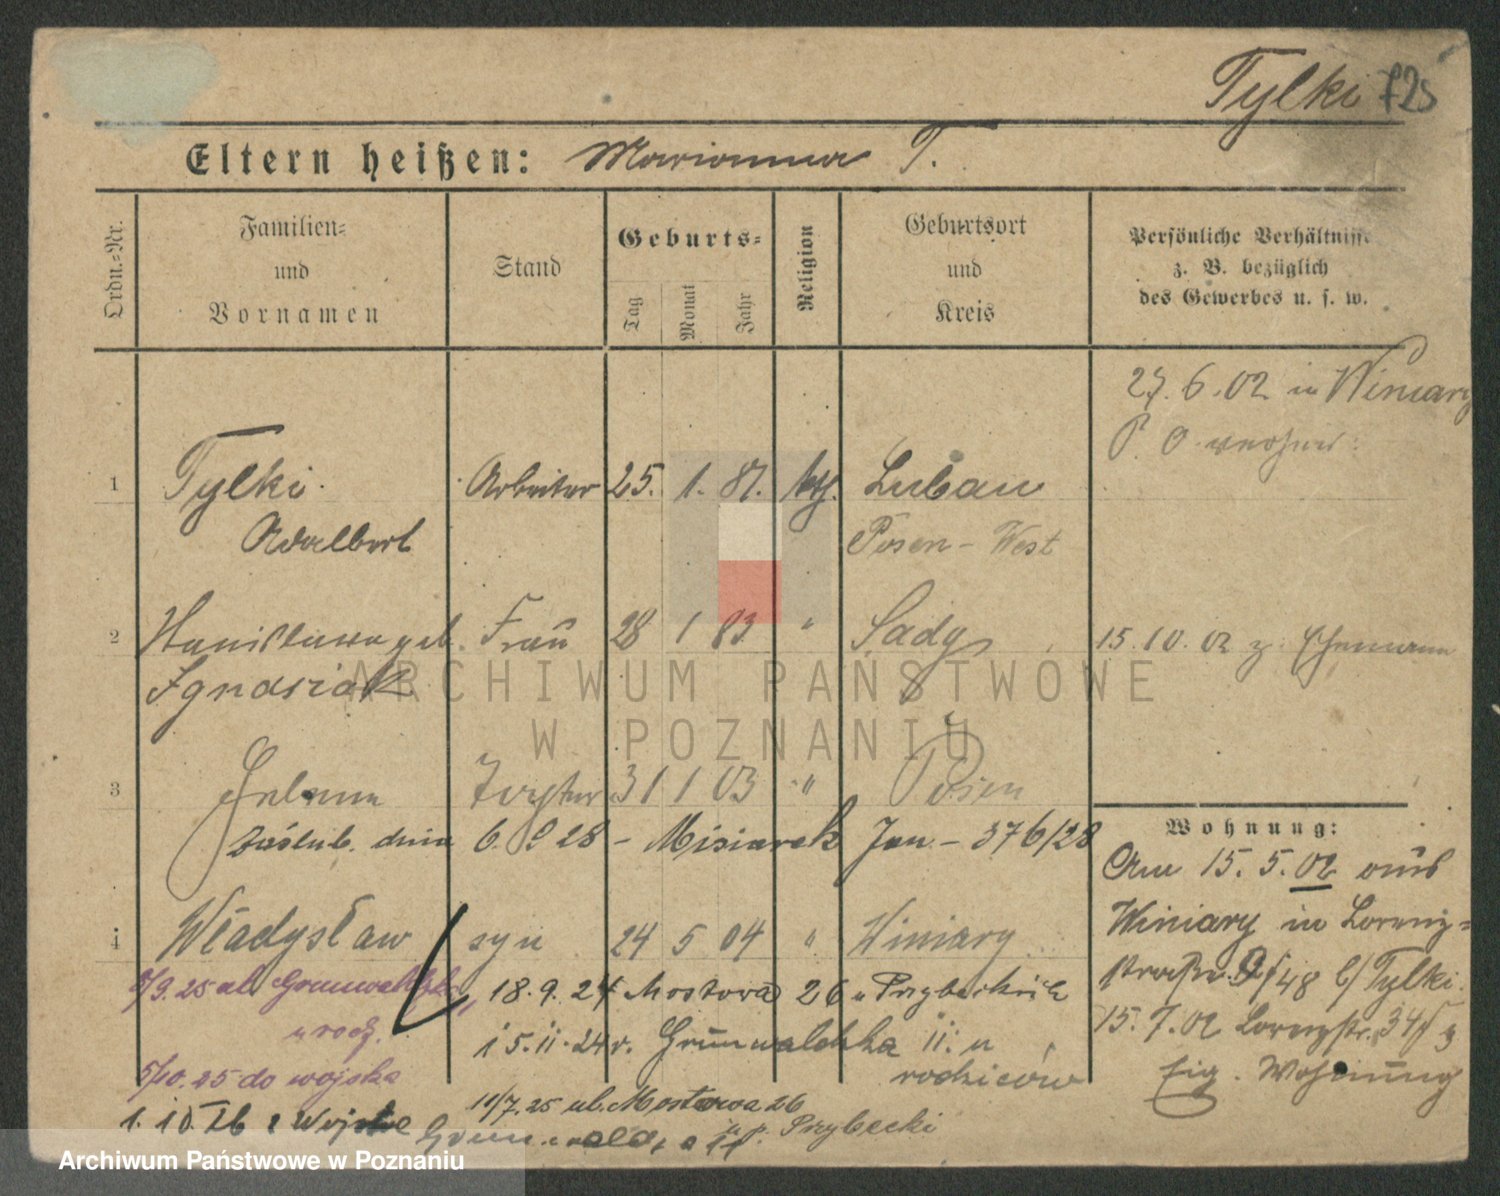 Tylki 725
Eltern heißen: Marianna T.
Ordn.-Nr.
Familien-
und
Vornamen
Stand
Geburts-
Tag
Monat
Jahr
Religion
Geburtsort
und
Kreis
Persönliche Verhältnisse
z. B. bezüglich
des Gewerbes u. s. w.
27.6.02 in Winiary
P. O.
1 Tylki Arbeiter 25. 1. 81. kth. Lubau
Adalbert Posen-West
2 Stanislawa geb. Frau 28 1 83 " Sady 15.10.02 z. Ehemann
Ignasiak
3 Helena Tochter 31 1 03 " Posen
zaślub. dnia 6. 9 28 - Misiarek Jan - 376/28
Wohnung:
Am 15. 5. 02 aus
Winiary in Lorenz-
straße 48 b/ Tylki.
15. 7. 02 Lorenzstr. 34
Eig. Wohnung
4 Władysław syn 24 5 04 " Winiary
9/9.25 ul. Grunwaldzka
u rodz.
5/10.25 do wojska
18.9.24 Mostowa 26 u Przybeckich
15.11.24r. Grunwaldzka 11. u
rodziców
11/7.25 ul. Mostowa 26
1. 10 26 z Wojska Grunwaldz. p. Przybecki
ARCHIWUM PAŃSTWOWE
W POZNANIU
Archiwum Państwowe w Poznaniu